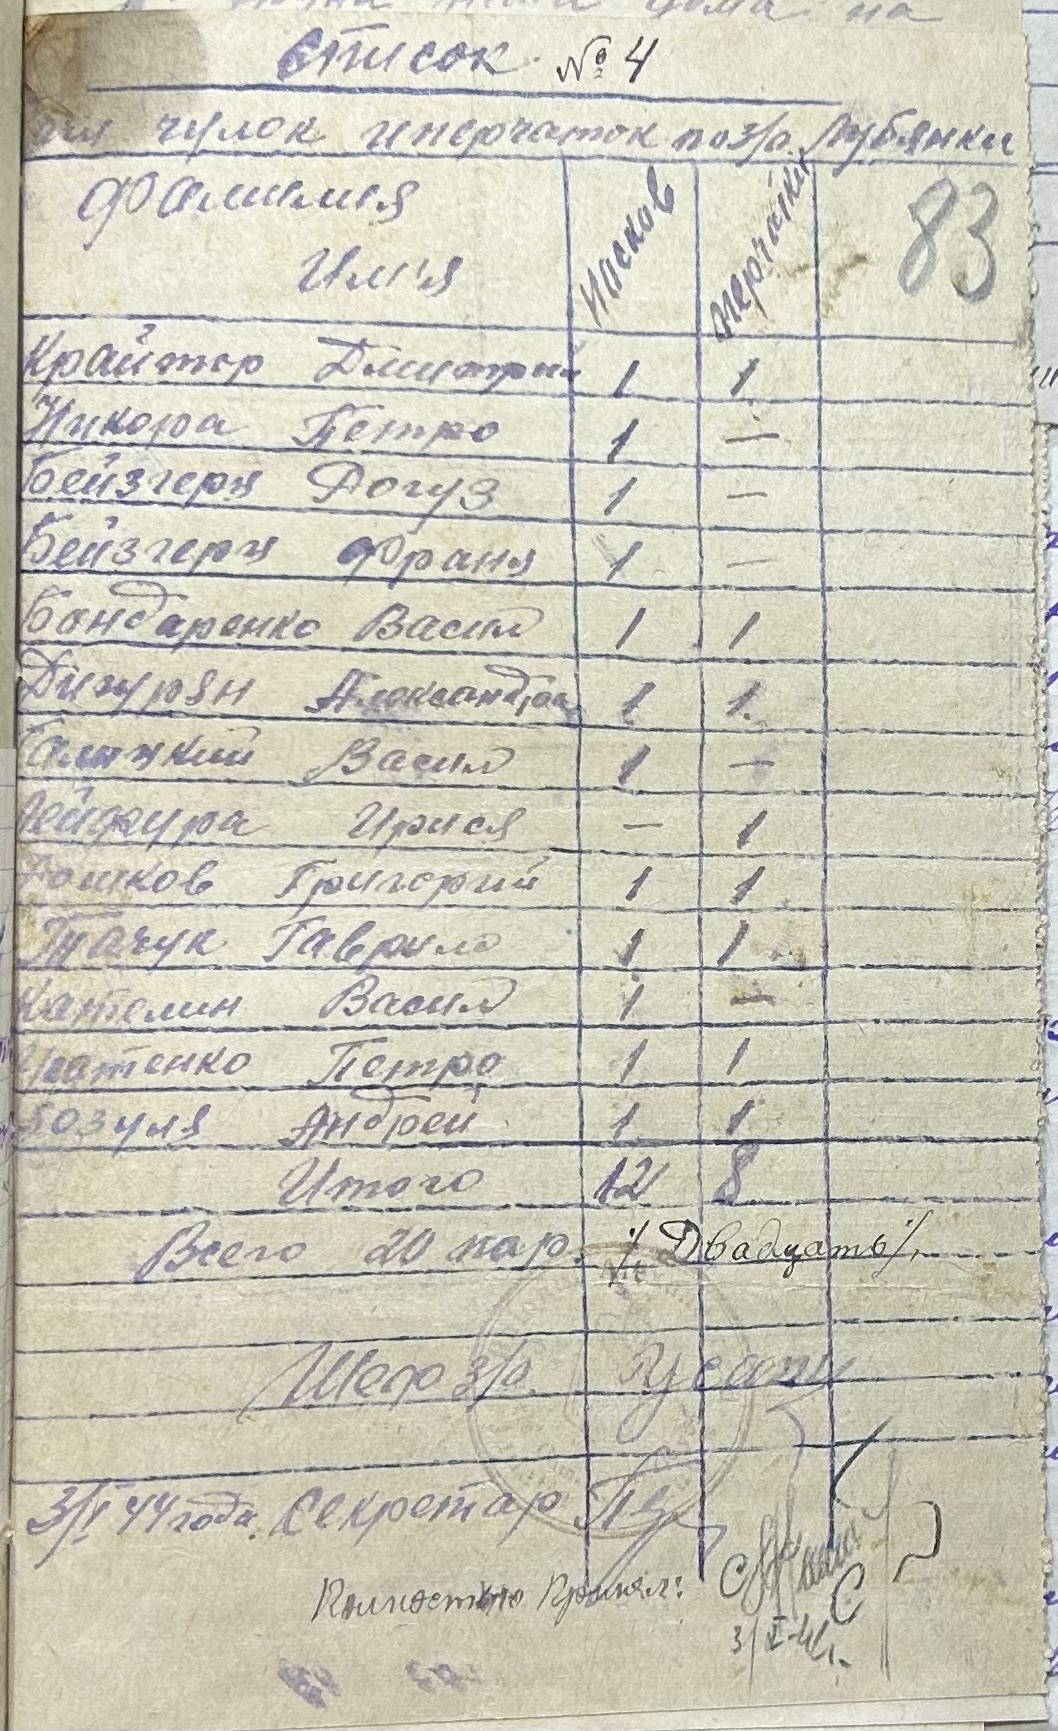 дома на
Список № 4
чулок и перчаток по з/о. Лубянки
Фамилия Имя Насков перчатки 83
Крайтор Дмитрий 1 1
Никора Петро 1 —
Бейзгерц Догуз 1 —
Бейзгерц Франя 1 —
Бондаренко Васил 1 1
Дигурян Александра 1 1
Галицкий Васил 1 —
Лейфура Ирися — 1
Дошков Григорий 1 1
Ткачук Гаврило 1 1
Кателин Васил 1 —
Петро 1 1
Зозуля Андрей 1 1
Итого 12 8
Всего 20 пар. /Двадцать/.
Шеф з/о.
3/I 44 года. Секретар
Принял: